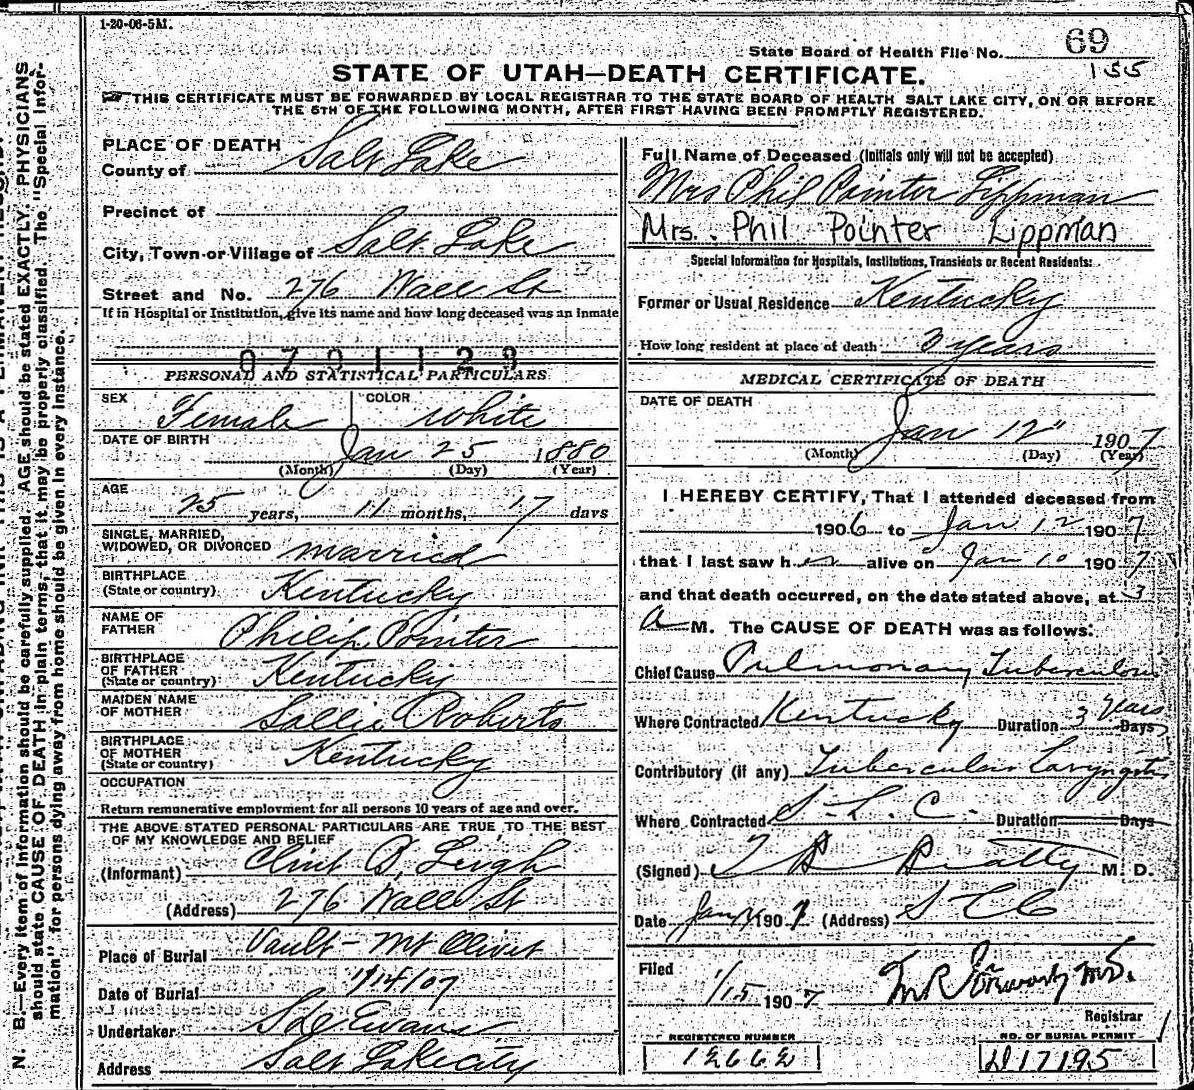 1-20-06-5M.
State Board of Health File No. 69
155
STATE OF UTAH—DEATH CERTIFICATE.
THIS CERTIFICATE MUST BE FORWARDED BY LOCAL REGISTRAR TO THE STATE BOARD OF HEALTH SALT LAKE CITY, ON OR BEFORE
THE 5TH OF THE FOLLOWING MONTH, AFTER FIRST HAVING BEEN PROMPTLY REGISTERED.
PLACE OF DEATH
County of Salt Lake
Precinct of
City, Town or Village of Salt Lake
Street and No. 276 Wall St
If in Hospital or Institution, give its name and how long deceased was an inmate
PERSONAL AND STATISTICAL PARTICULARS
SEX Female COLOR White
DATE OF BIRTH Jan 25 1880
(Month) (Day) (Year)
AGE 25 years, 11 months, 17 days
SINGLE, MARRIED,
WIDOWED, OR DIVORCED married
BIRTHPLACE
(State or country) Kentucky
NAME OF
FATHER Philip Pointer
BIRTHPLACE
OF FATHER
(State or country) Kentucky
MAIDEN NAME
OF MOTHER Sallie Roberts
BIRTHPLACE
OF MOTHER
(State or country) Kentucky
OCCUPATION
Return remunerative employment for all persons 10 years of age and over.
THE ABOVE STATED PERSONAL PARTICULARS ARE TRUE TO THE BEST
OF MY KNOWLEDGE AND BELIEF
(Informant) Clint B. Leigh
(Address) 276 Wall St
Place of Burial Vault - Mt Olivet
Date of Burial 1/14/07
Undertaker Evans
Address Salt Lake City
Full Name of Deceased (Initials only will not be accepted)
Mrs Phil Pointer Lippman
Mrs. Phil Pointer Lippman
Special Information for Hospitals, Institutions, Transients or Recent Residents:
Former or Usual Residence Kentucky
How long resident at place of death 3 years
MEDICAL CERTIFICATE OF DEATH
DATE OF DEATH
Jan 12" 1907
(Month) (Day) (Year)
I HEREBY CERTIFY, That I attended deceased from
1906 to Jan 12 1907
that I last saw her alive on Jan 10 1907
and that death occurred, on the date stated above, at 3
A M. The CAUSE OF DEATH was as follows:
Chief Cause Pulmonary Tuberculosis
Where Contracted Kentucky Duration 3 Years Days
Contributory (if any) Tubercular Laryngitis
Where Contracted S. L. C. Duration Days
(Signed) Beatty M. D.
Date Jan 1907 (Address) S L C
Filed
1/15 1907
Registrar
REGISTERED NUMBER
12662
NO. OF BURIAL PERMIT
D17195
N. B.—Every item of Information should be carefully supplied. AGE should be stated EXACTLY. PHYSICIANS
should state CAUSE OF DEATH in plain terms, that it may be properly classified. The "Special Infor-
mation" for persons dying away from home should be given in every instance.